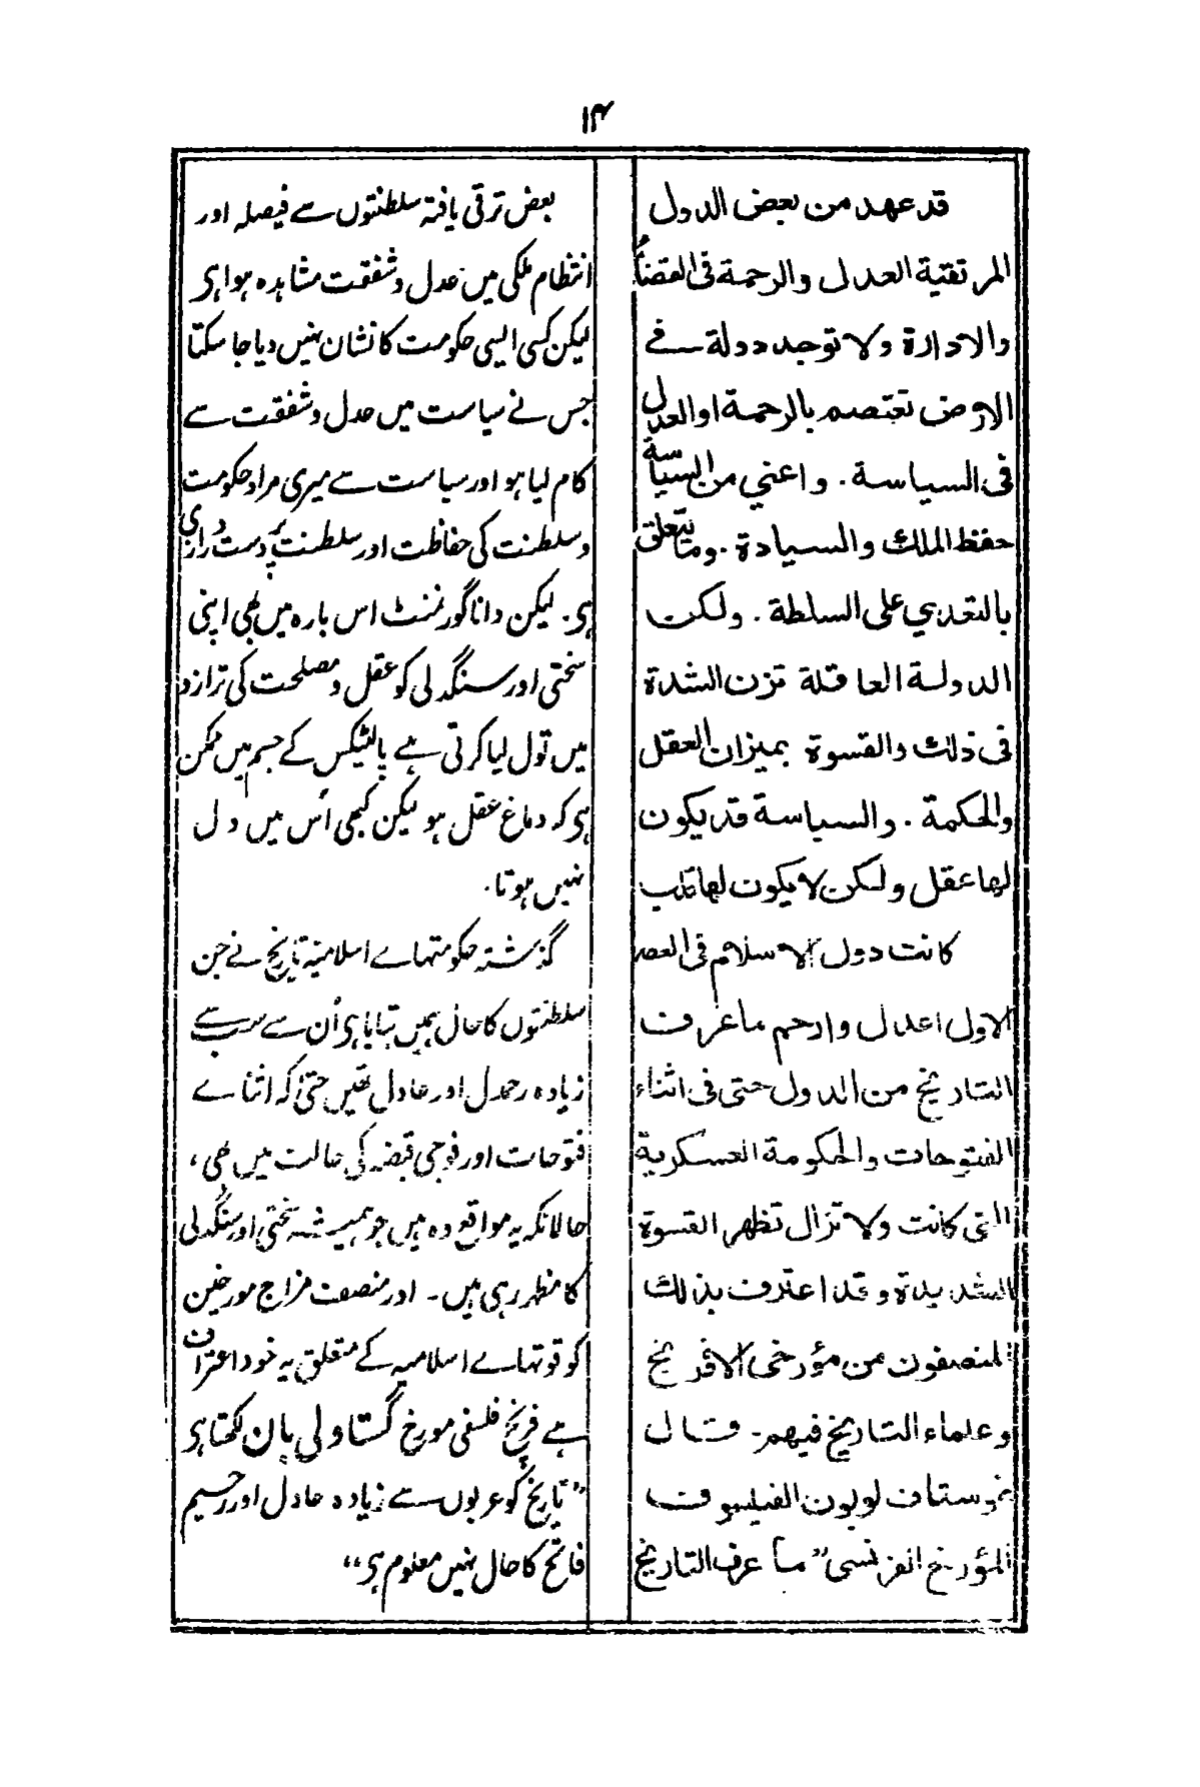 ۱۴
قد عهد من بعض الدول
المرتقية العدل والرحمة فى القضاء
والادارة ولا توجد دولة فے
الارض تعتصم بالرحمة او العدل
فى السياسة. واعني من السياسة
حفظ الملك والسيادة. وما يتعلق
بالتعدي على السلطة. ولكن
الدولة العاقلة تزن الشدة
فى ذلك والقسوة بميزان العقل
والحكمة. والسياسة قد يكون
لها عقل ولكن لا يكون لها قلب
كانت دول الاسلام فى العصر
الاول اعدل وارحم ما عرف
التاريخ من الدول حتى فى اثناء
الفتوحات والحكومة العسكرية
التى كانت ولا تزال تظهر القسوة
الشديدة وقد اعترف بذلك
المنصفون من مؤرخى الافرنج
وعلماء التاريخ فيهم۔ قال
غوستاف لوبون الفيلسوف
المؤرخ الفرنسى ”ما عرف التاريخ
بعض ترقی یافتہ سلطنتوں سے فیصلہ اور
انتظام ملکی میں عدل و شفقت مشاہدہ ہوا ہی
لیکن کسی ایسی حکومت کا نشان نہیں دیا جا سکتا
جس نے سیاست میں عدل و شفقت سے
کام لیا ہو اور سیاست سے میری مراد حکومت
و سلطنت کی حفاظت اور سلطنت پر دست درازی
ہی. لیکن دانا گورنمنٹ اس بارہ میں بھی اپنی
سختی اور سنگدلی کو عقل و مصلحت کی ترازو
میں تول لیا کرتی ہے پالٹیکس کے جسم میں ممکن
ہی کہ دماغ عقل ہو لیکن کبھی اُس میں دل
نہیں ہوتا.
گذشتہ حکومتہاے اسلامیہ تاریخ نے جن
سلطنتوں کا حال ہمیں بتایا ہی اُن سے سب سے
زیادہ رحمدل اور عادل تھیں حتیٰ کہ اثناے
فتوحات اور فوجی قبضہ کی حالت میں بھی،
حالانکہ یہ مواقع وہ ہیں جو ہمیشہ سختی اور سنگدلی
کا مظہر رہی ہیں۔ اور منصف مزاج مورخین
کو قوتہاے اسلامیہ کے متعلق یہ خود اعتراف
ہے فرنچ فلسفی مورخ گستاولی بان لکھتا ہی
”تاریخ کو عربوں سے زیادہ عادل اور رحیم
فاتح کا حال نہیں معلوم ہی“